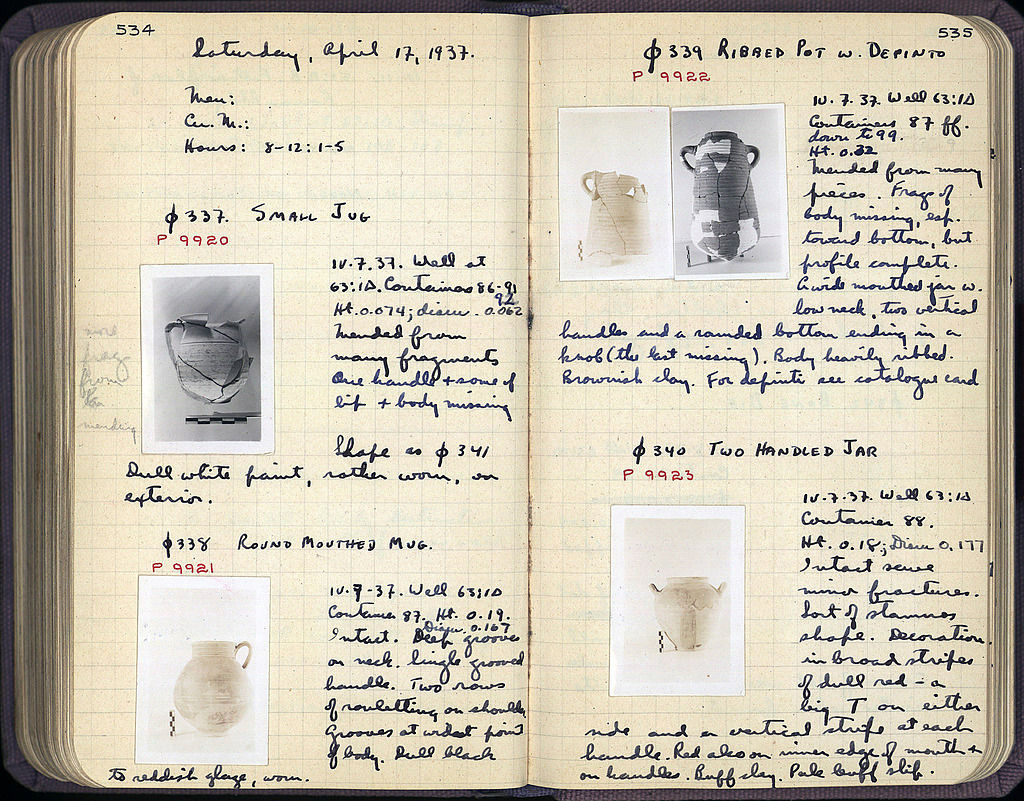 534
Saturday, April 17, 1937.
Men:
Cu. M.:
Hours: 8-12: 1-5
ϕ 337. SMALL JUG
P 9920
IV.7.37. Well at
63:ΙΔ. Containers 86-91
92
Ht. 0.074; diam. 0.062
Mended from
many fragments
One handle + some of
lip + body missing
more
frags
from
mending
Shape as ϕ 341
Dull white paint, rather worn, on
exterior.
ϕ 338 ROUND MOUTHED MUG.
P 9921
IV.7-37. Well 63:ΙΔ
Container 87. Ht. 0.19.
Diam. 0.167
Intact. Deep grooves
on neck. Single grooved
handle. Two rows
of rouletting on shoulder
grooves at widest point
of body. Dull black
to reddish glaze, worn.
535
ϕ 339 RIBBED POT W. DEPINTO
P 9922
IV.7.37. Well 63:ΙΔ
Containers 87 ff.
down to 99.
Ht. 0.32
Mended from many
pieces. Frags of
body missing, esp.
toward bottom, but
profile complete.
A wide mouthed jar w.
low neck, two vertical
handles and a rounded bottom ending in a
knob (the last missing). Body heavily ribbed.
Brownish clay. For depinti see catalogue card
ϕ 340 TWO HANDLED JAR
P 9923
IV.7.37. Well 63:ΙΔ
Container 88.
Ht. 0.18; Diam 0.177
Intact save
minor fractures.
Sort of stamnos
shape. Decoration
in broad stripes
of dull red - a
big T on either
side and a vertical stripe at each
handle. Red also on inner edge of mouth +
on handles. Buff clay. Pale buff slip.